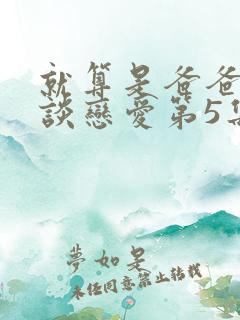 就算是爸爸
談戀愛第5集
夢如是
未經同意禁止轉載